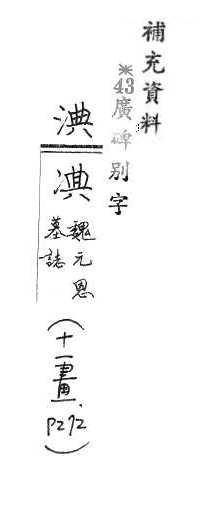 補充資料
※43廣碑別字
淟
魏元恩
墓誌
(十一畫.P272)